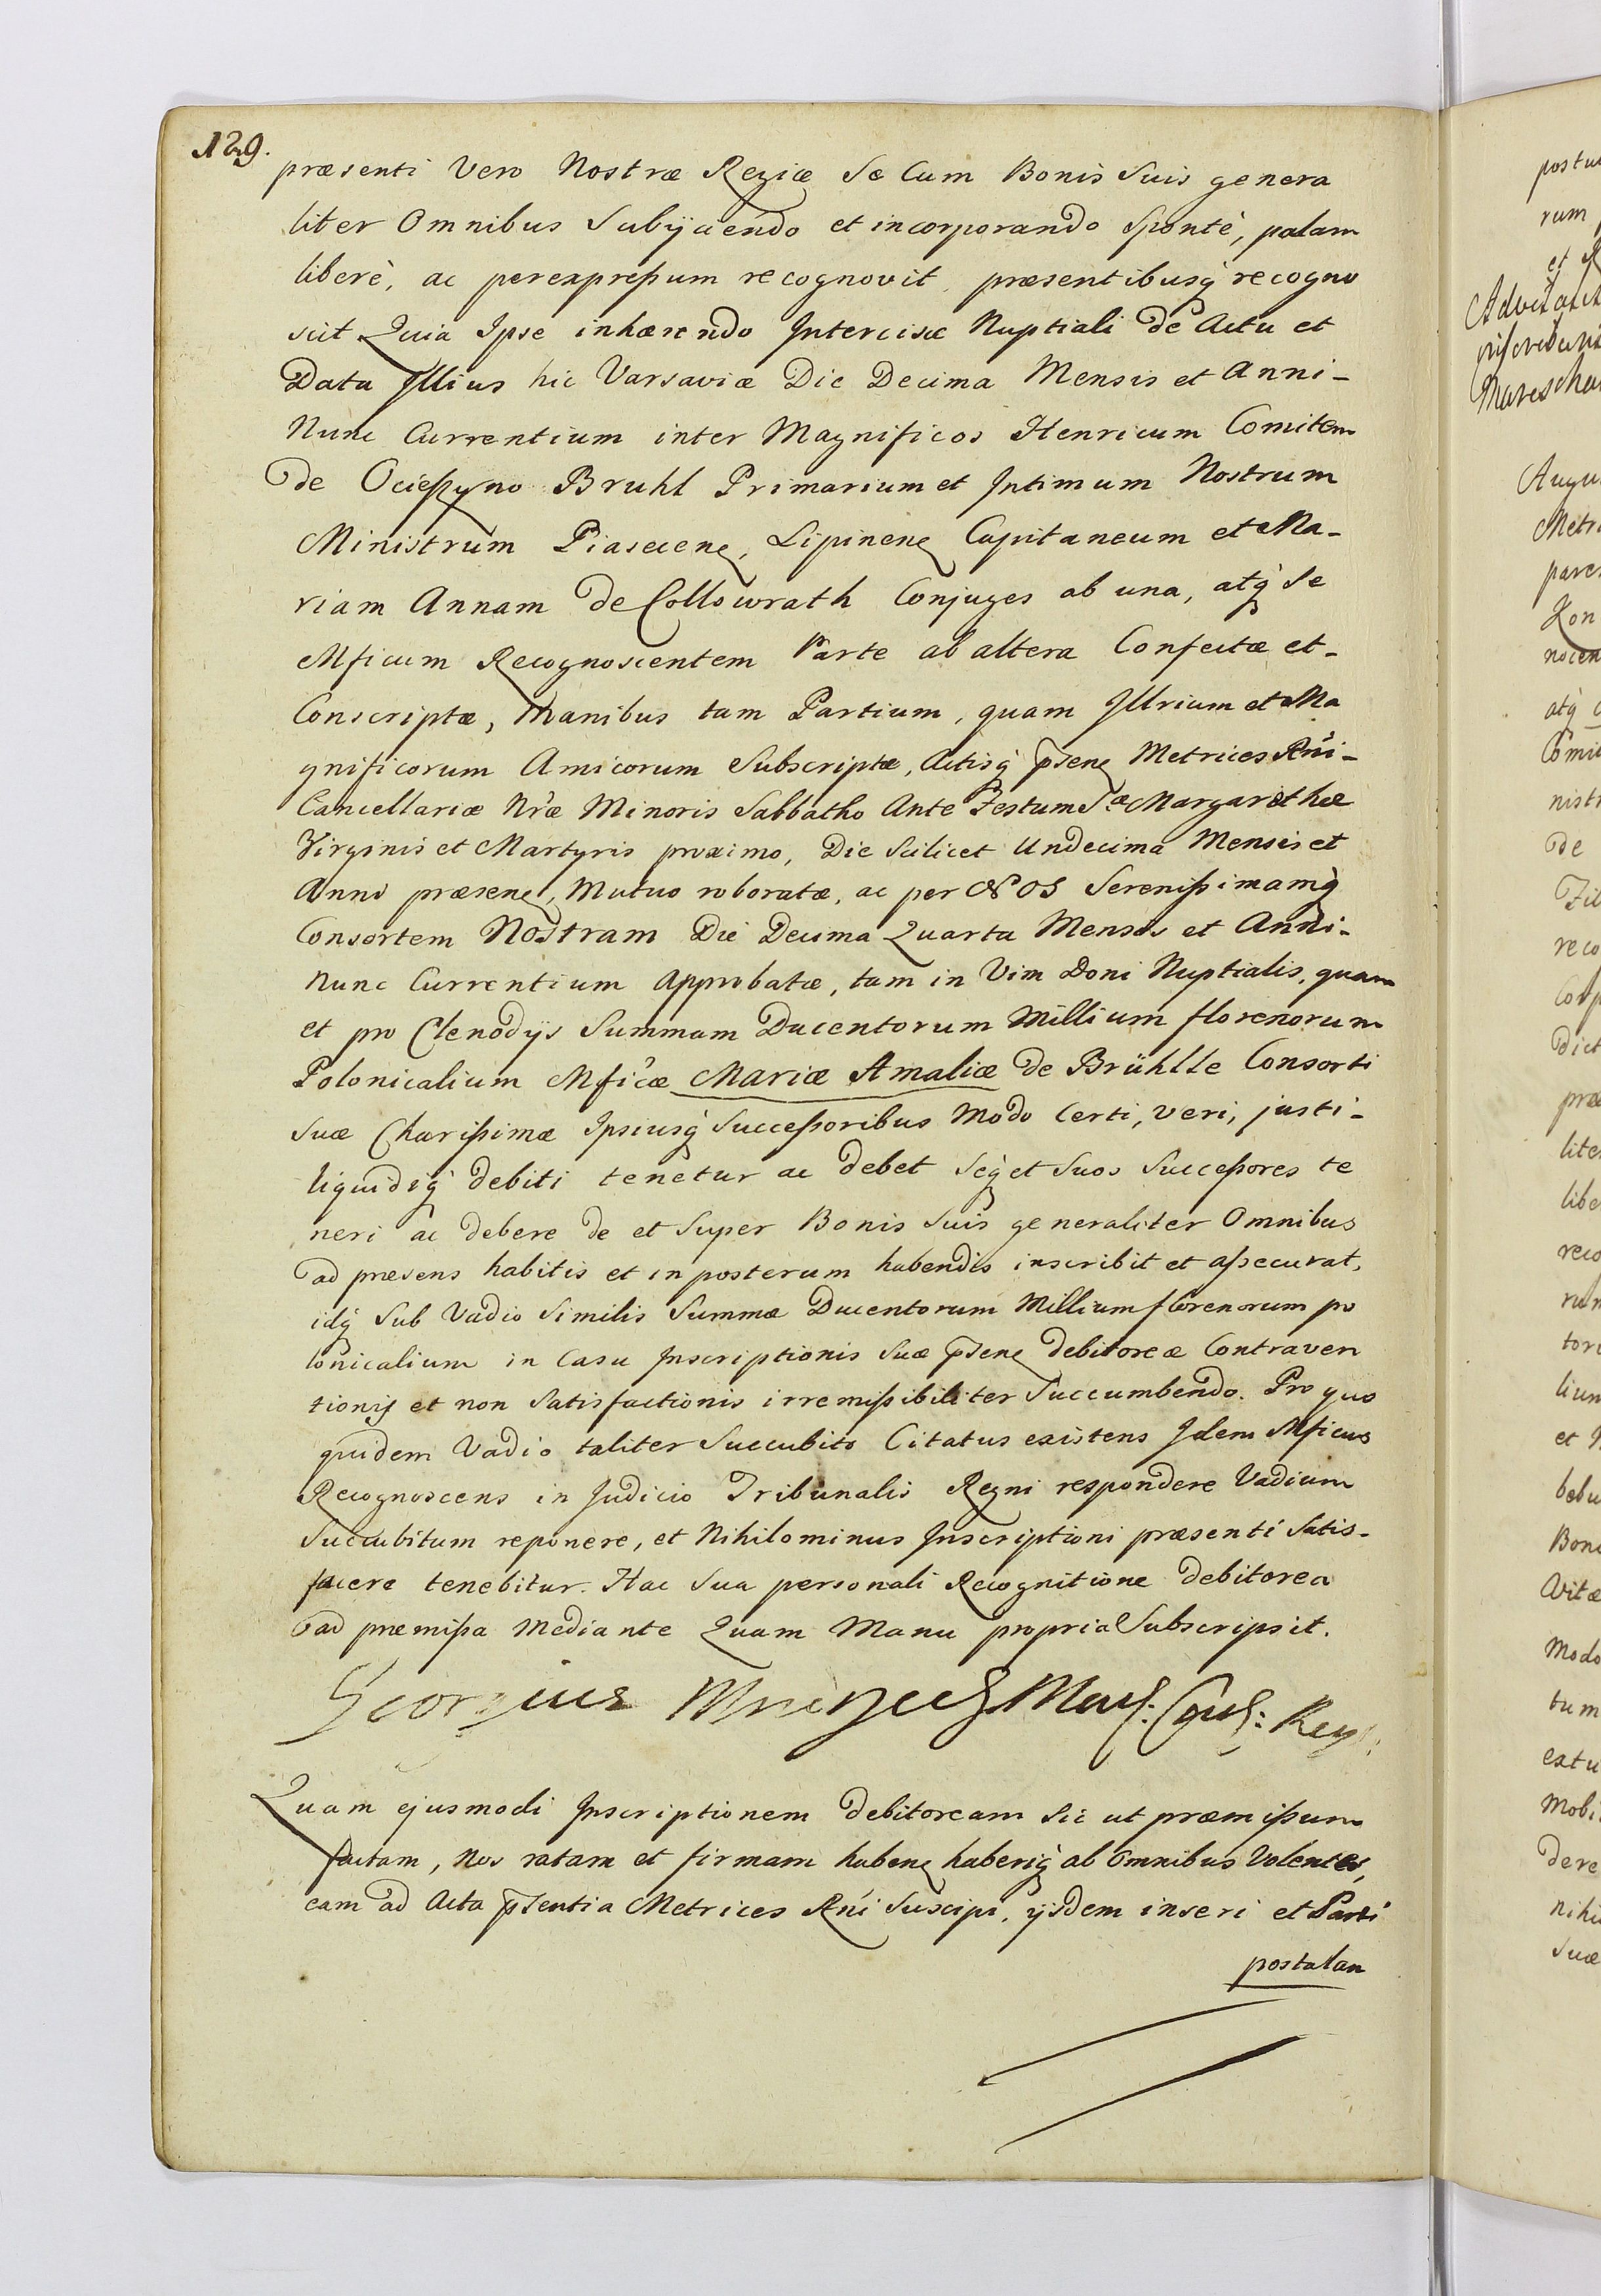 129.
præsenti Vero Nostræ Regiæ Se Cum Bonis Suis genera
liter Omnibus Subijciendo et incorporando Sponté, palam
liberè, ac perexpreßum recognovit, præsentibusq́ recogno
scit Quia Ipse inhærendo Intercisæ Nuptiali de Actu et
Data Illius hic Varsaviæ Die Decima Mensis et Anni-
Nunc Currentium inter Magnificos Henricum Comitem
de Ocießyno Bruhl Primarium et Intimum Nostrum
Ministrum Piasecens, Lipinens Capitaneum et Ma-
riam Annam de Collowrath Conjuges ab una, atq́ Se
Mficum Recognoscentem Parte ab altera Confectæ et-
Conscriptæ, Manibus tam Partium, quam Illrium et Ma
gnificorum Amicorum Subscriptæ, Actisq́ p̃sens Metrices Rńi-
Cancellariæ Nŕæ Minoris Sabbatho Ante Festum Sæ Margarethæ
Virginis et Martyris proximo, Die Scilicet Undecima Mensis et
Anni præsens, Mutuo roboratæ, ac per NOS Serenißimamq́
Consortem Nostram Die Decima Quarta Mensis et Anni-
Nunc Currentium Approbatæ, tam in Vim Doni Nuptialis, quam
et pro Clenodijs Summam Ducentorum Millium florenorum
Polonicalium Mficæ Mariæ Amaliæ de Brühlle Consorti
Suæ Charißimæ Ipsiusq́ Succeßoribus Modo Certi, veri, justi-
liquidiq́ debiti tenetur ac debet Seq́ et Suos Succeßores te
neri ac debere de et Super Bonis Suis generaliter Omnibus
ad præsens habitis et in posterum habendis inscribit et aßecurat,
idq́ Sub Vadio Similis Summæ Ducentorum Millium florenorum po
lonicalium in Casu Inscriptionis Suæ p̃sens debitoreæ Contraven
tionis et non Satisfactionis irremißibiliter Succumbendo. Pro quo
quidem Vadio taliter Succubito Citatus existens Idem Mficus
Recognoscens in Judicio Tribunalis Regni respondere Vadium
Succubitum reponere, et Nihilominus Inscriptioni præsenti Satis-
facere tenebitur. Hac Sua personali Recognitione debitorea
ad præmißa Mediante Quam Manu propria Subscripsit.
Georgius Mniszech
Quam ejusmodi Inscriptionem debitoream Sic ut præmißum
factam, Nos ratam et firmam habens haberiq́ ab Omnibus Volentes,
eam ad Acta p̃sentia Metrices Rńi Suscipi, ijsdem inseri et Parti
postulan
postu
rum
et
Augu
Metri
pares
nocen
atq́
nistr
de
reco
dict
præ
liter
libe
reco
lium
et
Bona
Modo
tum
Mobi
dere
nihi
Suæ